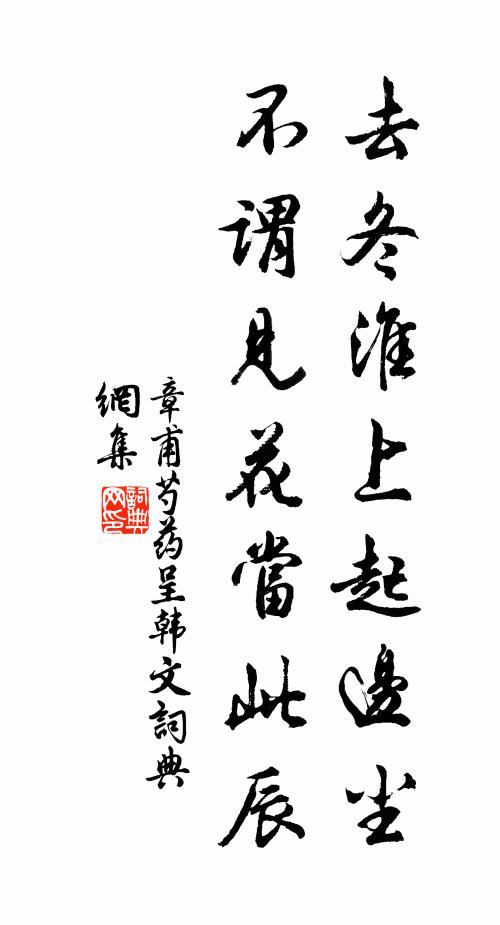 去冬淮上起邊尘
不謂見花當此辰
章甫芍药呈韩文詞典
網集
詞典
网印